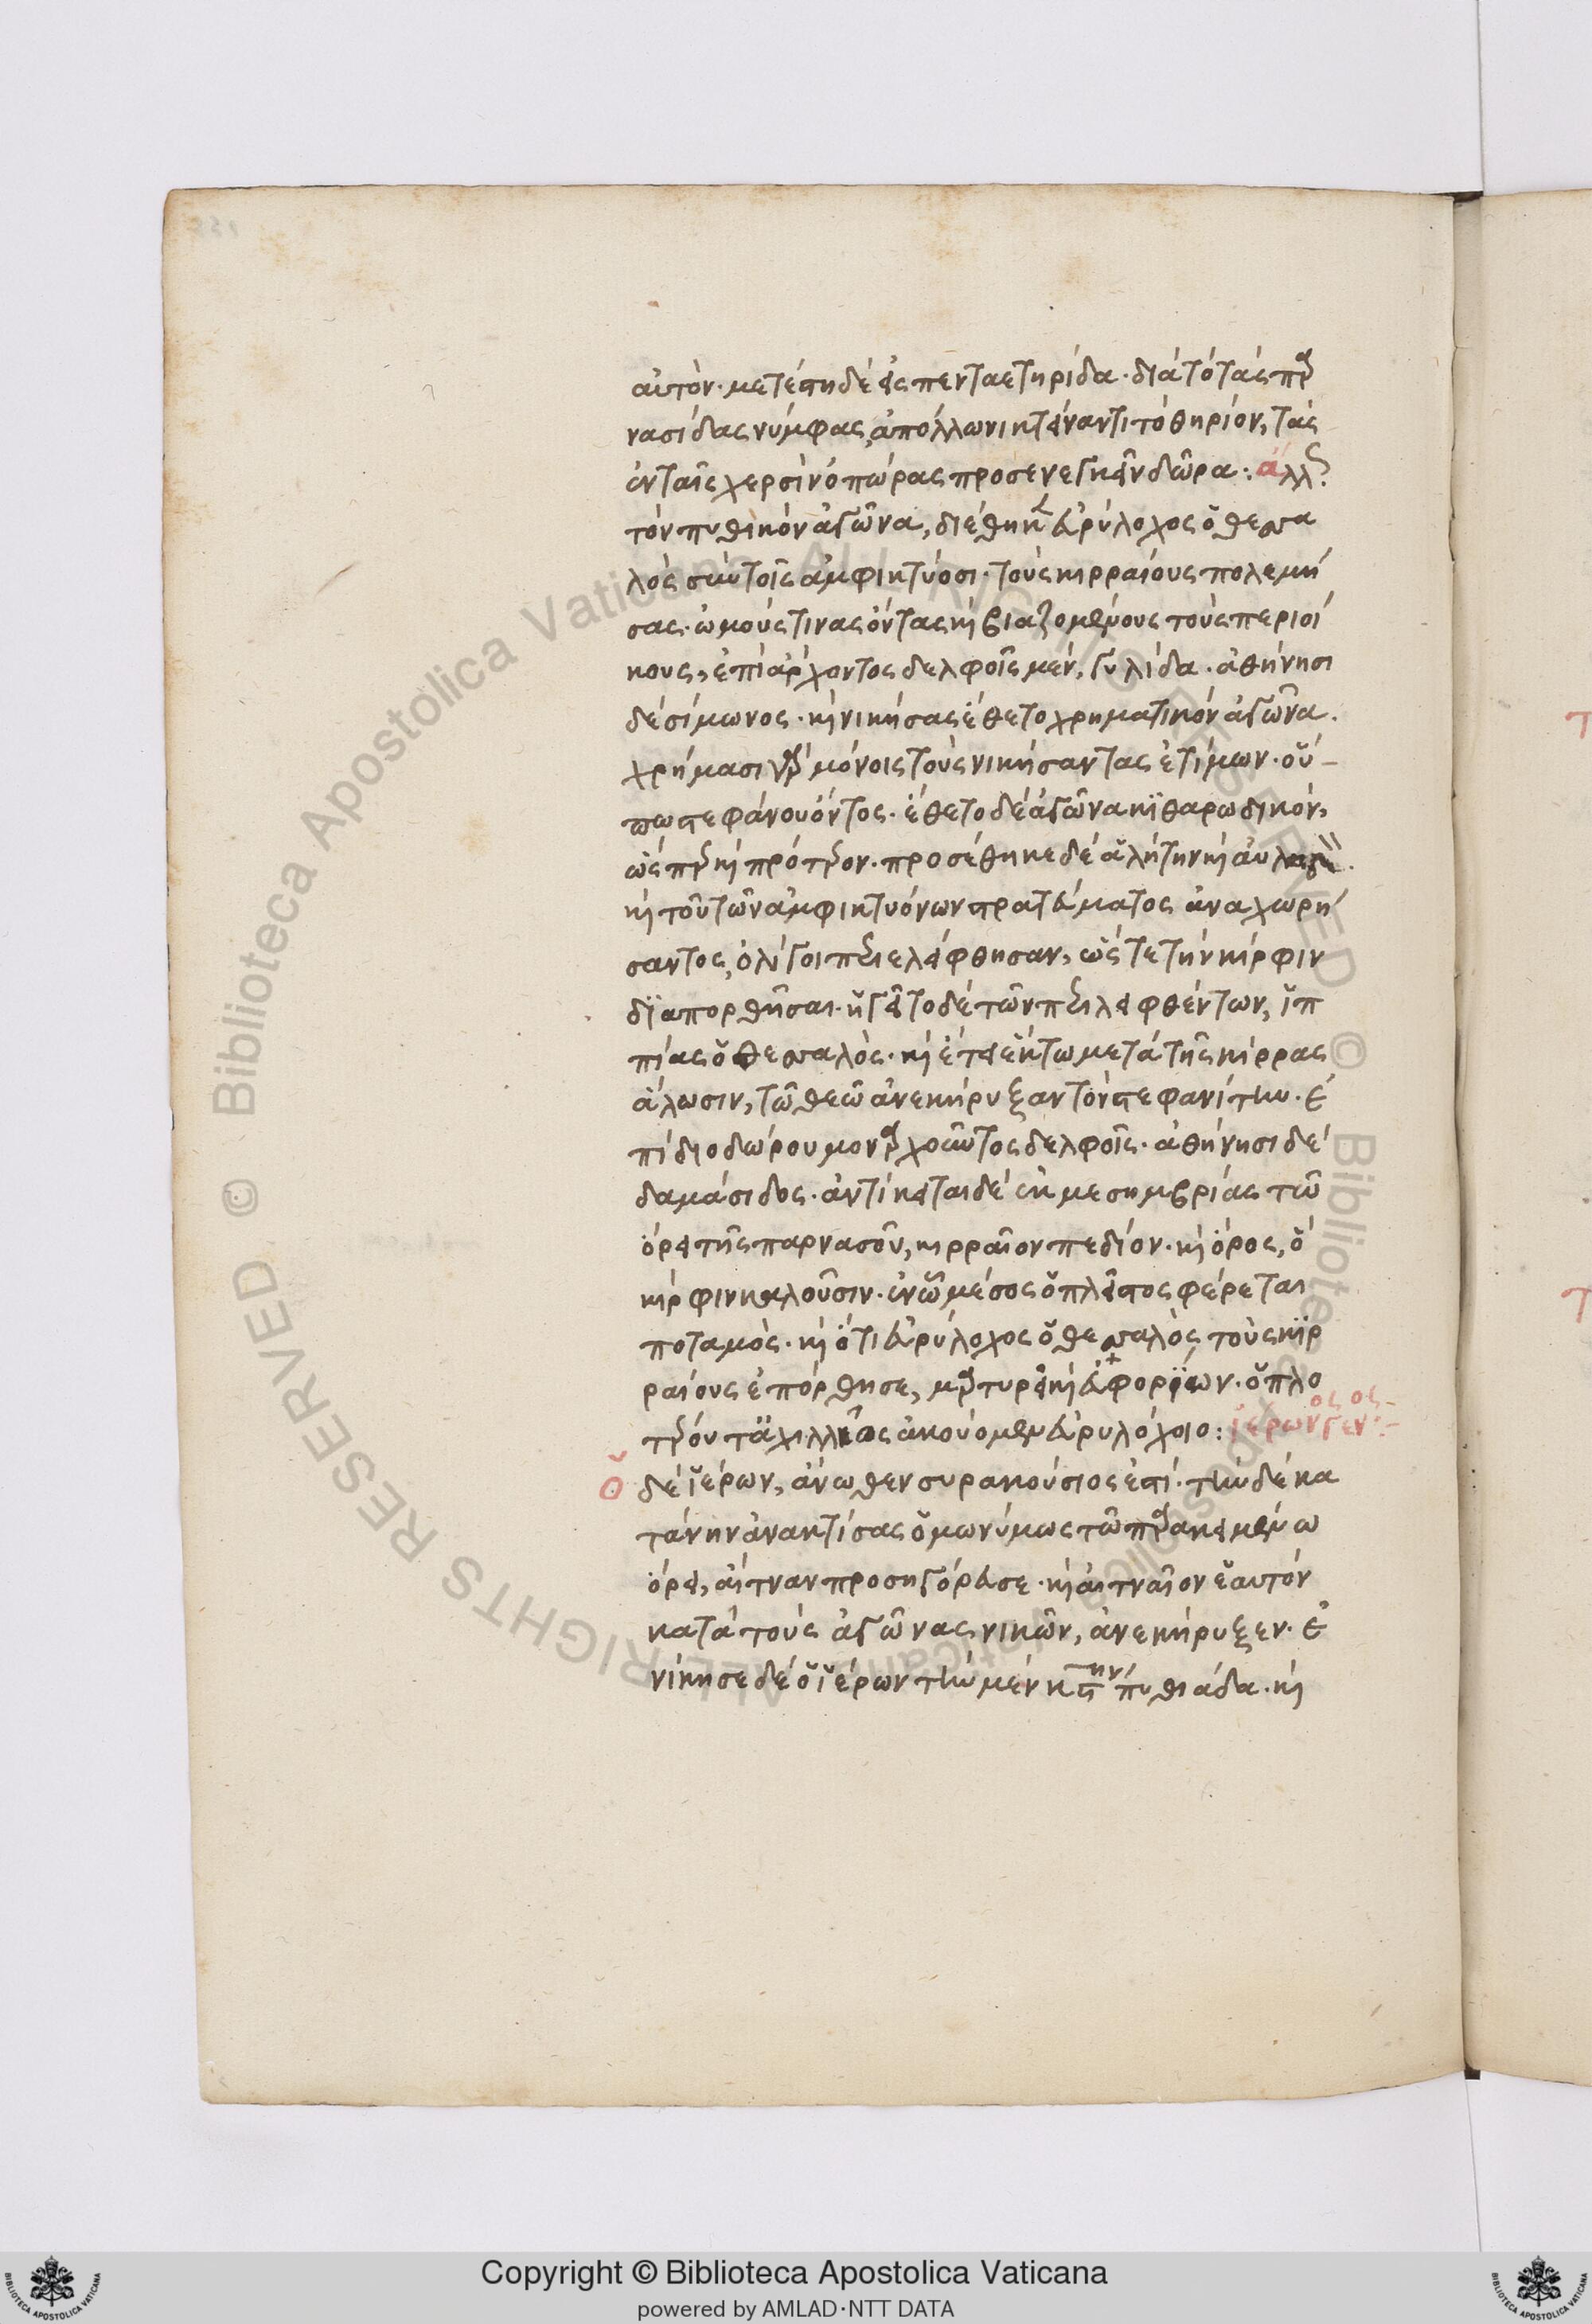 αὐτόν· μετέστη δὲ εἰς πενταετηρίδα· διὰ τὸ τὰς παρ
νασίδας νύμφας, ἀπόλλωνι κτείναντι τὸ θηρίον, τὰς
ἐν ταῖς χερσὶν ὀπώρας προσενεγκεῖν δῶρα: ἄλλως
τὸν πυθικὸν ἀγῶνα, διέθηκεν εὐρύλοχος ὁ θεσσα
λὸς σὺν τοῖς ἀμφικτύοσι· τοὺς κιρραίους πολεμή
σας· ὠμούς τινας ὄντας καὶ βιαζομένους τοὺς περιοί
κους, ἐπὶ ἄρχοντος δελφοῖς μὲν, γυλίδα· ἀθήνησι
δὲ σίμωνος· καὶ νικήσας ἔθετο χρηματικὸν ἀγῶνα.
χρήμασι γὰρ μόνοις τοὺς νικήσαντας ἐτίμων· οὔ-
πω στεφάνου ὄντος· ἔθετο δὲ ἀγῶνα κιθαρωδικὸν,
ὥσπερ καὶ πρότερον· προσέθηκε δὲ αὐλήτην καὶ
καὶ τοῦ τῶν ἀμφικτυόνων στρατεύματος ἀναχωρή
σαντος, ὀλίγοι περιελείφθησαν, ὥστε τὴν κίρφιν
διαπορθῆσαι· ἡγεῖτο δὲ τῶν περιλειφθέντων, ἱπ
πίας ὁ θεσσαλὸς· καὶ ἔτει ἕκτω μετὰ τῆς κίρρας
ἅλωσιν, τῶ θεῶ ἀνεκήρυξαν τὸν στεφανίτην· ἐ
πὶ διοδώρου μοναρχοῦντος δελφοῖς· ἀθήνησι δὲ
δαμάσιδος· ἀντίκειται δὲ ἐκ μεσημβρίας τῶ
ὄρει τῆς παρνασοῦ, κιρραῖον πεδίον· καὶ ὄρος, ὃ
κίρφιν καλοῦσιν· ἐν ὧ μέσος ὁ πλεῖστος φέρεται
ποταμὸς· καὶ ὅτι εὐρύλοχος ὁ θεσσαλὸς τοὺς κιρ
ραίους ἐπόρθησε, μαρτυρεῖ καὶ εὐφορίων· ὁπλο
τέρου τ' ἀχιλλῆος ἀκούομεν εὐρυλόχοιο: ἱέρωνος γένος:-
ὁ δὲ ἱέρων, ἄνωθεν συρακούσιος ἐστί· τὴν δὲ κα
τάνην ἀνακτίσας ὁμωνύμως τῶ παρακειμένω
ὄρει, αἴτναν προσηγόρευσε· καὶ αἰτναῖον ἑαυτὸν
κατὰ τοὺς ἀγῶνας νικῶν, ἀνεκήρυξεν· ἐ
νίκησε δὲ ὁ ἱέρων τὴν μὲν κϛην πυθιάδα· καὶ